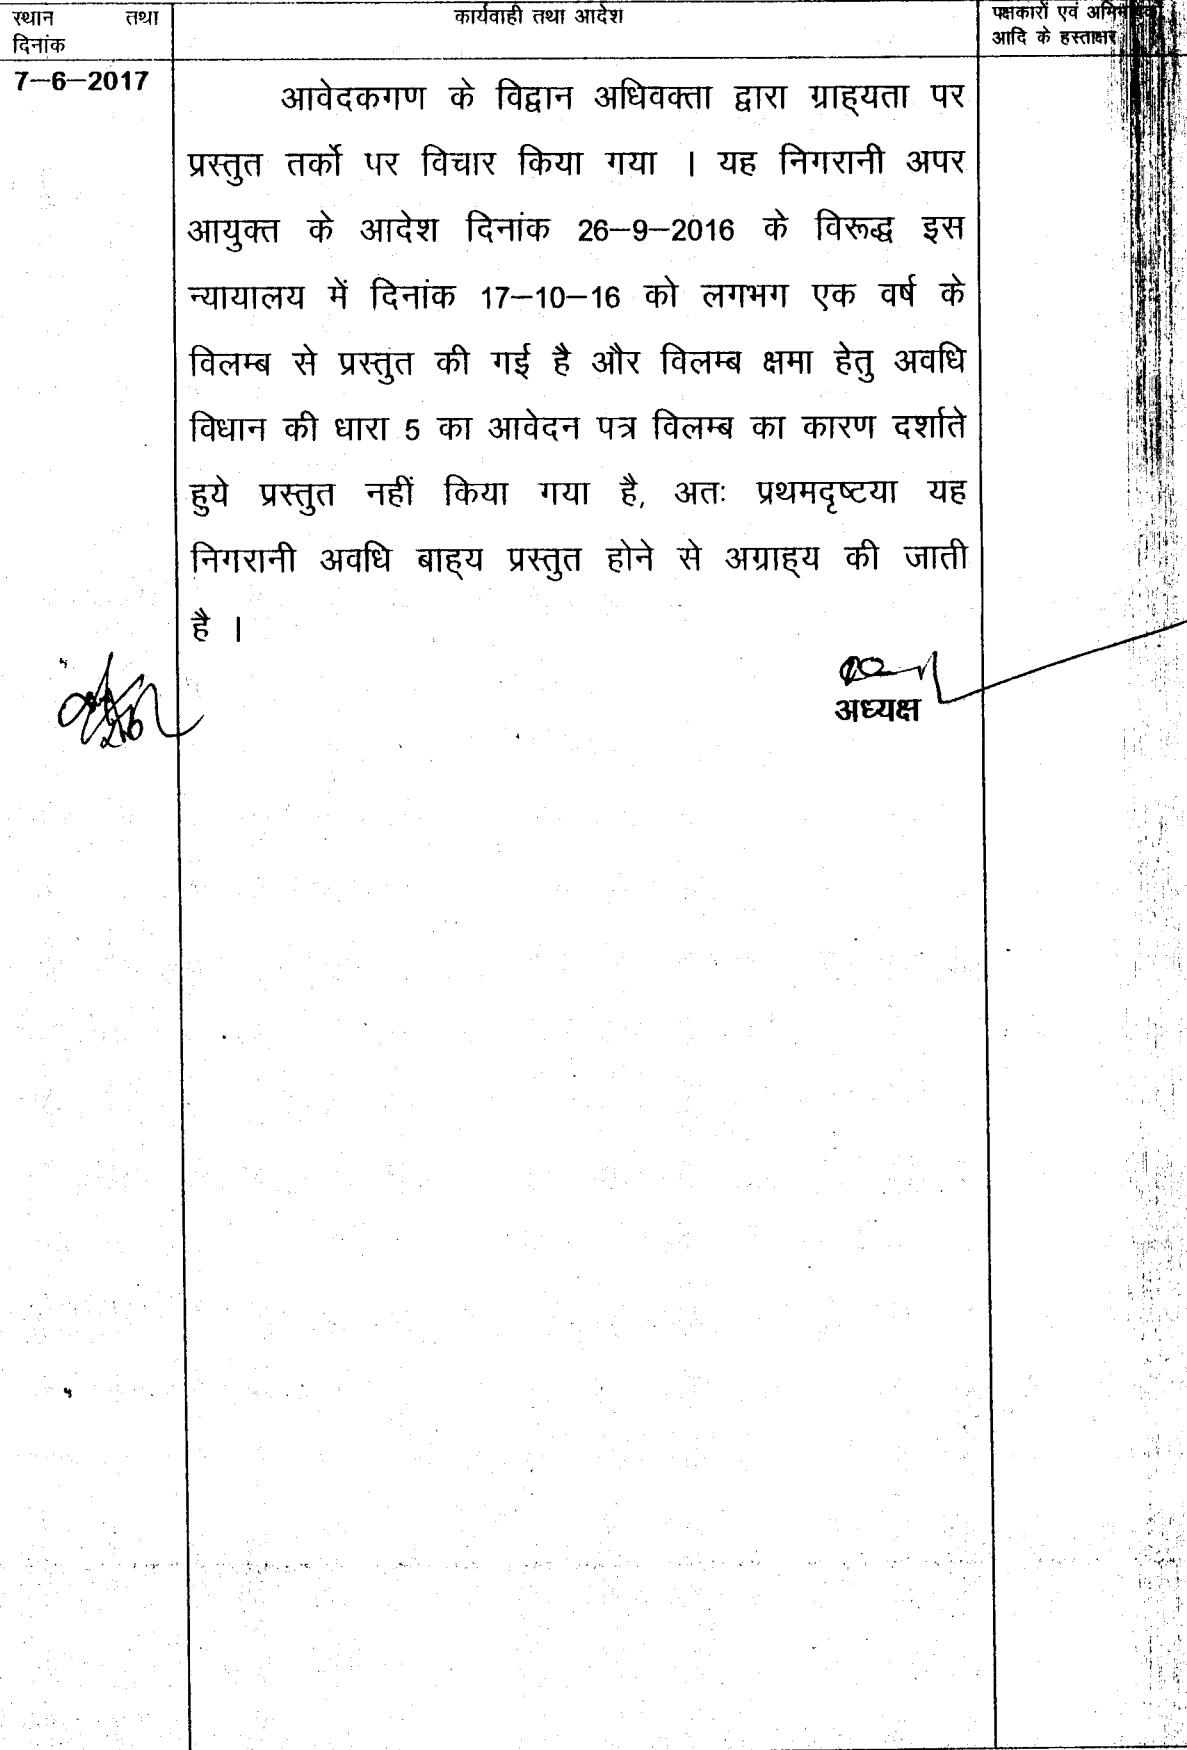 स्थान तथा
दिनांक
कार्यवाही तथा आदेश
पक्षकारों एवं
आदि के हस्ताक्षर
7–6–2017
आवेदकगण के विद्वान अधिवक्ता द्वारा ग्राह्यता पर
प्रस्तुत तर्को पर विचार किया गया । यह निगरानी अपर
आयुक्त के आदेश दिनांक 26–9–2016 के विरूद्ध इस
न्यायालय में दिनांक 17–10–16 को लगभग एक वर्ष के
विलम्ब से प्रस्तुत की गई है और विलम्ब क्षमा हेतु अवधि
विधान की धारा 5 का आवेदन पत्र विलम्ब का कारण दर्शाते
हुये प्रस्तुत नहीं किया गया है, अतः प्रथमदृष्टया यह
निगरानी अवधि बाह्य प्रस्तुत होने से अग्राह्य की जाती
है ।
अध्यक्ष